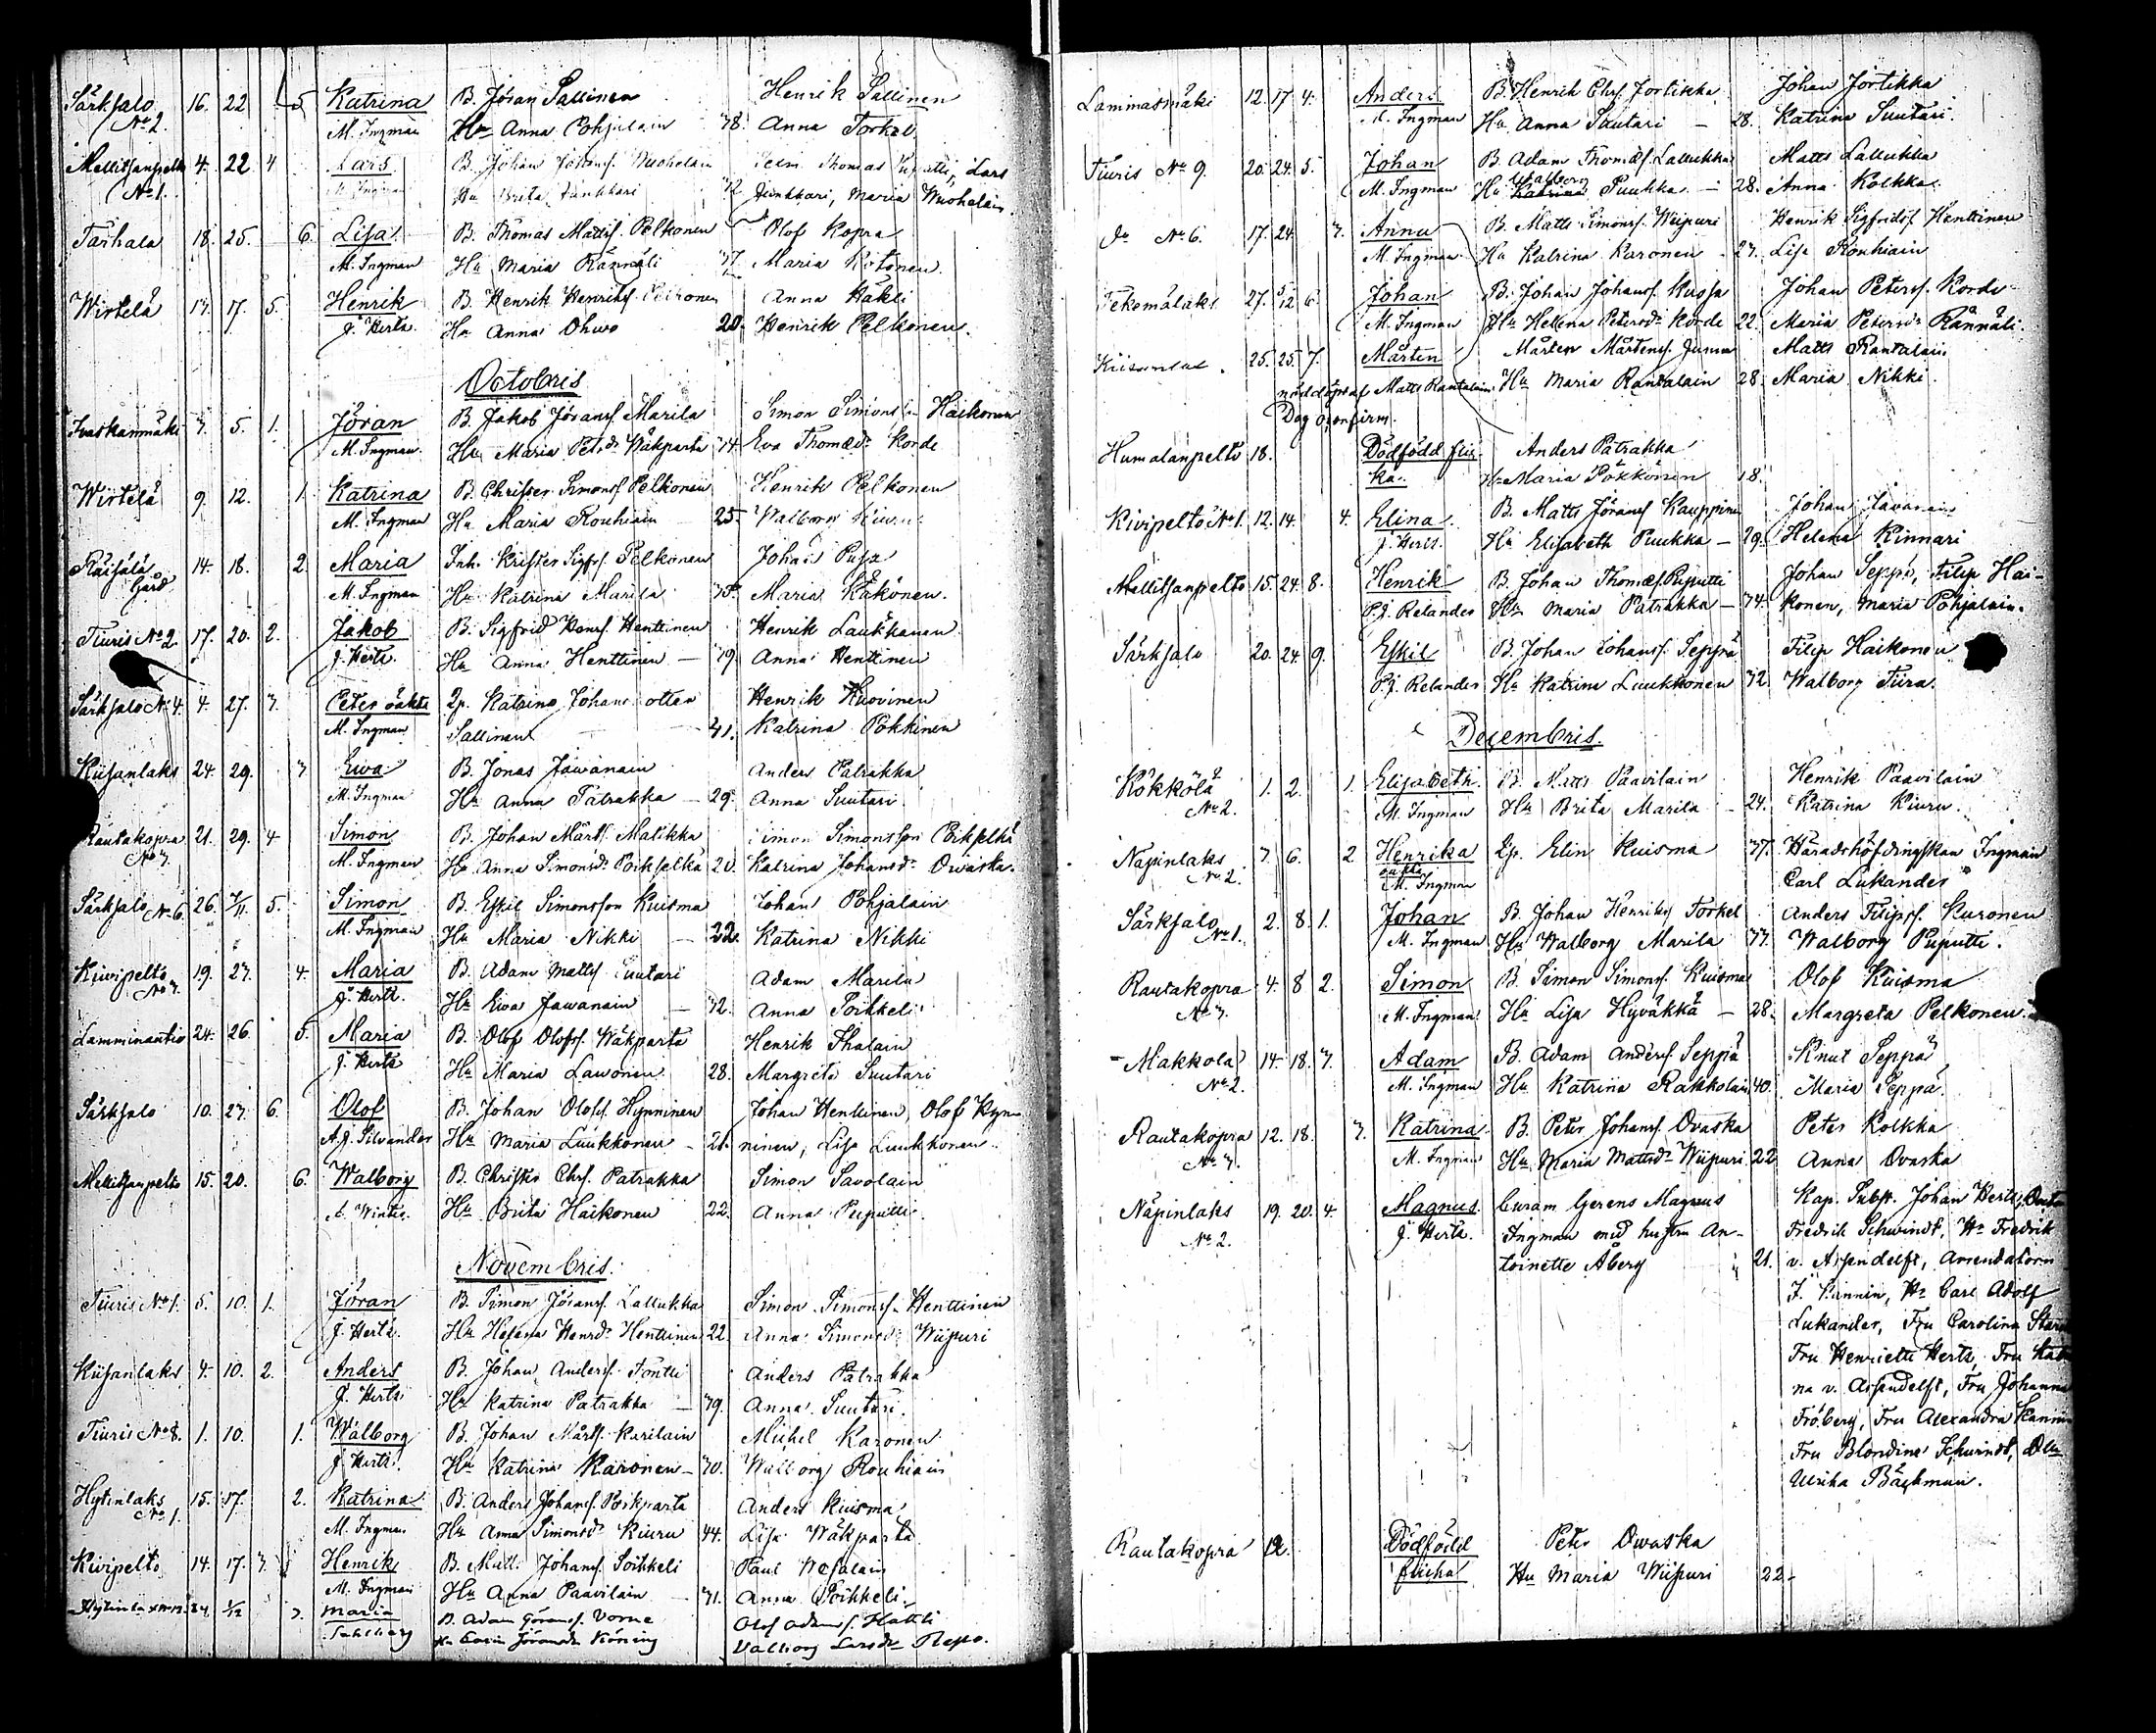 Särksalo 16. 22 5 Katrina B. Jöran Sallinen Henrik Sallinen
No 2. M. Ingman Hu Anna Pohjalain 38. Anna Torkel
Mellitsanpelto 4. 22 4 Lars B. Johan Johansf. Wuohelain Thomas Lars
No 1. M. Ingman Hu Brita Junkkari 32 Junkkari, Maria Wuohelain.
Tarhala 18. 25. 6. Lisa B. Thomas Mattsf. Pelkonen Olof Kopra
M. Ingman Hu Maria Rännäli 37 Maria Kotonen.
Wirtelä 13. 17. 5. Henrik B. Henrik Henriksf. Anna Häkli
J. Herts. Hu Anna Ohwo 20. Henrik Pelkonen.
Octobris
Ivaskanmäki 3. 5. 1. Jöran B. Jakob Jöransf. Marila Simon Simonsson Haikonen
M. Ingman. Hu Maria Petsdr Wäkparta 34. Eva Thomædr Korde
Wirtelä 9. 12. 1. Katrina B. Christer Simonsf. Pelkonen Henrik Pelkonen
M. Ingman Hu Maria Rouhiain 25. Walborg
Räisälä 14. 18. 2. Maria Inh. Krister Sigfrsf. Pelkonen Johan Pusa
Gård M. Ingman Hu Katrina Marila 35. Maria Käkönen.
Tiuris No 2. 17. 20. 2. Jakob B. Sigfrid Henrsf. Henttinen Henrik Laukkanen
J. Herts. Hu Anna Henttinen 39. Anna Henttinen
Särksalo No 4. 4. 27. 3. Peter oäkta Qp. Katrina Johansdotter Henrik Huovinen
M. Ingman Sallinen 41. Katrina Pökkinen
Kiisanlaks 24. 29. 3 Ewa B. Jonas Jäwanain Anders Patrakka
M. Ingman Hu Anna Patrakka 29. Anna Suutari
Rautakopra 21. 29. 4 Simon B. Johan Mårtsf. Matikka Simon Simonsson Poikselkä
No 3. M. Ingman Hu Anna Simonsdr Poikselkä 20. Katrina Johansdr Owaska.
Särksalo No 6. 26. 3/11. 5. Simon B. Eskil Simonsson Kuisma Johan Pohjalain
M. Ingman Hu Maria Nikki 22. Katrina Nikki
Kivipelto 19. 27. 4. Maria B. Adam Mattsf. Suutari Adam Marila
No 3. J. Herts. Hu Ewa Jawanain 32. Anna Soikkeli
Lamminantio 24. 26. 5. Maria B. Olof Olofsf. Wäkparta Henrik Ihalain
J. Herts Hu Maria Lawonen 28. Margreta Suutari
Särksalo 10. 27. 6. Olof B. Johan Olofsf. Hynninen Johan Henttinen, Olof Hyn-
A. J. Silvander Hu Maria Luukkonen 21. ninen, Lisa Luukkonen.
Mellitsanpelto 15. 20. 6. Walborg B. Christer Chrsf. Patrakka Simon Savolain
A. Winter. Hu Brita Haikonen 22. Anna Puputti
Novembris.
Tiuris No 1. 5. 10. 1. Jöran B. Simon Jöransf. Lallukka Simon Simonsf. Henttinen
J. Herts. Hu Helena Henrsdr Henttinen 22. Anna Simonsdr Wiipuri
Kiisanlaks 4. 10. 2. Anders B. Johan Andersf. Tontti Anders Patrakka
J. Herts Hu Katrina Patrakka 39. Anna Suutari.
Tiuris No 8. 1. 10. 1. Walborg B. Johan Mårtsf. Karilain Michel Karonen
J. Herts. Hu Katrina Karonen 30. Walborg Rouhiain
Hytinlaks 15. 17. 2. Katrina B. Anders Johansf. Poikparta Anders Kuisma
No 1. M. Ingman Hu Anna Simonsdr Kiuru 44. Lisa Wäkparta
Kivipelto 14. 17. 3. Henrik B. Matts Johansf. Soikkeli Paul Wesalain
M. Ingman Hu Anna Paavilain 31. Anna Soikkeli.
24. 1/12 3. Maria B. Adam Göransf. Vorne Olof Adamsf. Hattli
Hu Jöransdr Valborg Larsdr Repo.
Lammasmäki 12. 17 4. Anders B. Henrik Chrsf. Jortikka Johan Jortikka
M. Ingman Hu Anna Suutari 28. Katrina Suutari.
Tiuris No 9. 20. 24. 5. Johan B. Adam Thomæsf. Lallukka Matts Lallukka
M. Ingman Hu Katrina Walborg Puukka 28. Anna Kolkka
do No 6. 17. 24. 3. Anna B. Matts Simonsf. Wiipuri Henrik Sigfridsf. Henttinen
M. Ingman Hu Katrina Karonen 23. Lisa Rouhiain
Tekemälaks 27. 5/12 6. Johan B. Johan Johansf. Kuosa Johan Petersf. Korde
M. Ingman Hu Helena Petersdr Korde 22. Maria Petersdr Rännäli.
25. 25. 7. Mårten Mårten Mårtensf. Junna Matts Rantalain
nöddöpt af Matts Rantalain. Hu Maria Rantalain 28. Maria Nikki.
Dog o.confirm.
Humalanpelto 18. Dödfödd flic- Anders Patrakka
ka. Hu Maria Pökkönen 18.
Kivipelto No 1. 12. 14. 4. Elina. B. Matts Jöransf. Kauppinen Johan Jävanain
J. Herts. Hu Elisabeth Puukka 29. Helena Kinnari
Mellitsanpelto 15. 24. 8. Henrik B. Johan Thomæsf. Puputti Johan Seppä, Filip Hai-
P. J. Relander Hu Maria Patrakka 34. konen, Maria Pohjalain.
Särksalo 20. 24. 9. Eskil B. Johan Johansf. Seppä Filip Haikonen
P. J. Relander Hu Katrina Luukkonen 32. Walborg Tiira.
Decembris.
Kökkölä 1. 2. 1. Elisabeth. B. Matts Paavilain Henrik Paavilain
No 2. M. Ingman Hu Brita Marila 24. Katrina Kiuru
Näpinlaks 3. 6. 2. Henrika Qp. Elin Kuisma 37. Häradshöfdingskan Ingman
No 2. oäkta M. Ingman Carl Lukander
Särksalo 2. 8. 1. Johan B. Johan Henriksf. Torkel Anders Filipsf. Kuronen
No 1. M. Ingman Hu Walborg Marila 33. Walborg Puputti.
Rautakopra 4. 8 2. Simon B. Simon Simonsf. Kuisma Olof Kuisma
No 3. M. Ingman Hu Lisa Hyväkkä 28. Margreta Pelkonen.
Makkola 14. 18. 3. Adam B. Adam Andersf. Seppä Knut Seppä
No 2. M. Ingman Hu Katrina Rakkolain 40. Maria Seppä.
Rautakopra 12. 18. 3. Katrina B. Peter Johansf. Ovaska Peter Kolkka
No 3. M. Ingman Hu Maria Mattsdr Wiipuri 22 Anna Ovaska
Näpinlaks 19. 20. 4. Magnus. Curam Gerens Magnus Kap. Subst. Johan Herts,
No 2. J. Herts. Ingman med hustru An- Fredrik Schwindt, Hr Fredrik
toinette Åberg 21. v. Assendelft, Arrendatorn
J. Kannin, Hr Carl Adolf
Lukander, Fru Carolina
Fru Henriette Herts, Fru
na v. Assendelft, Fru Johanna
Fröberg, Fru Alexandra Kannin
Fru Blondina Schwindt,
Ulrika Bäckman.
Rautakopra 12. Dödfödd Peter Owaska
flicka Hu Maria Wiipuri 22.